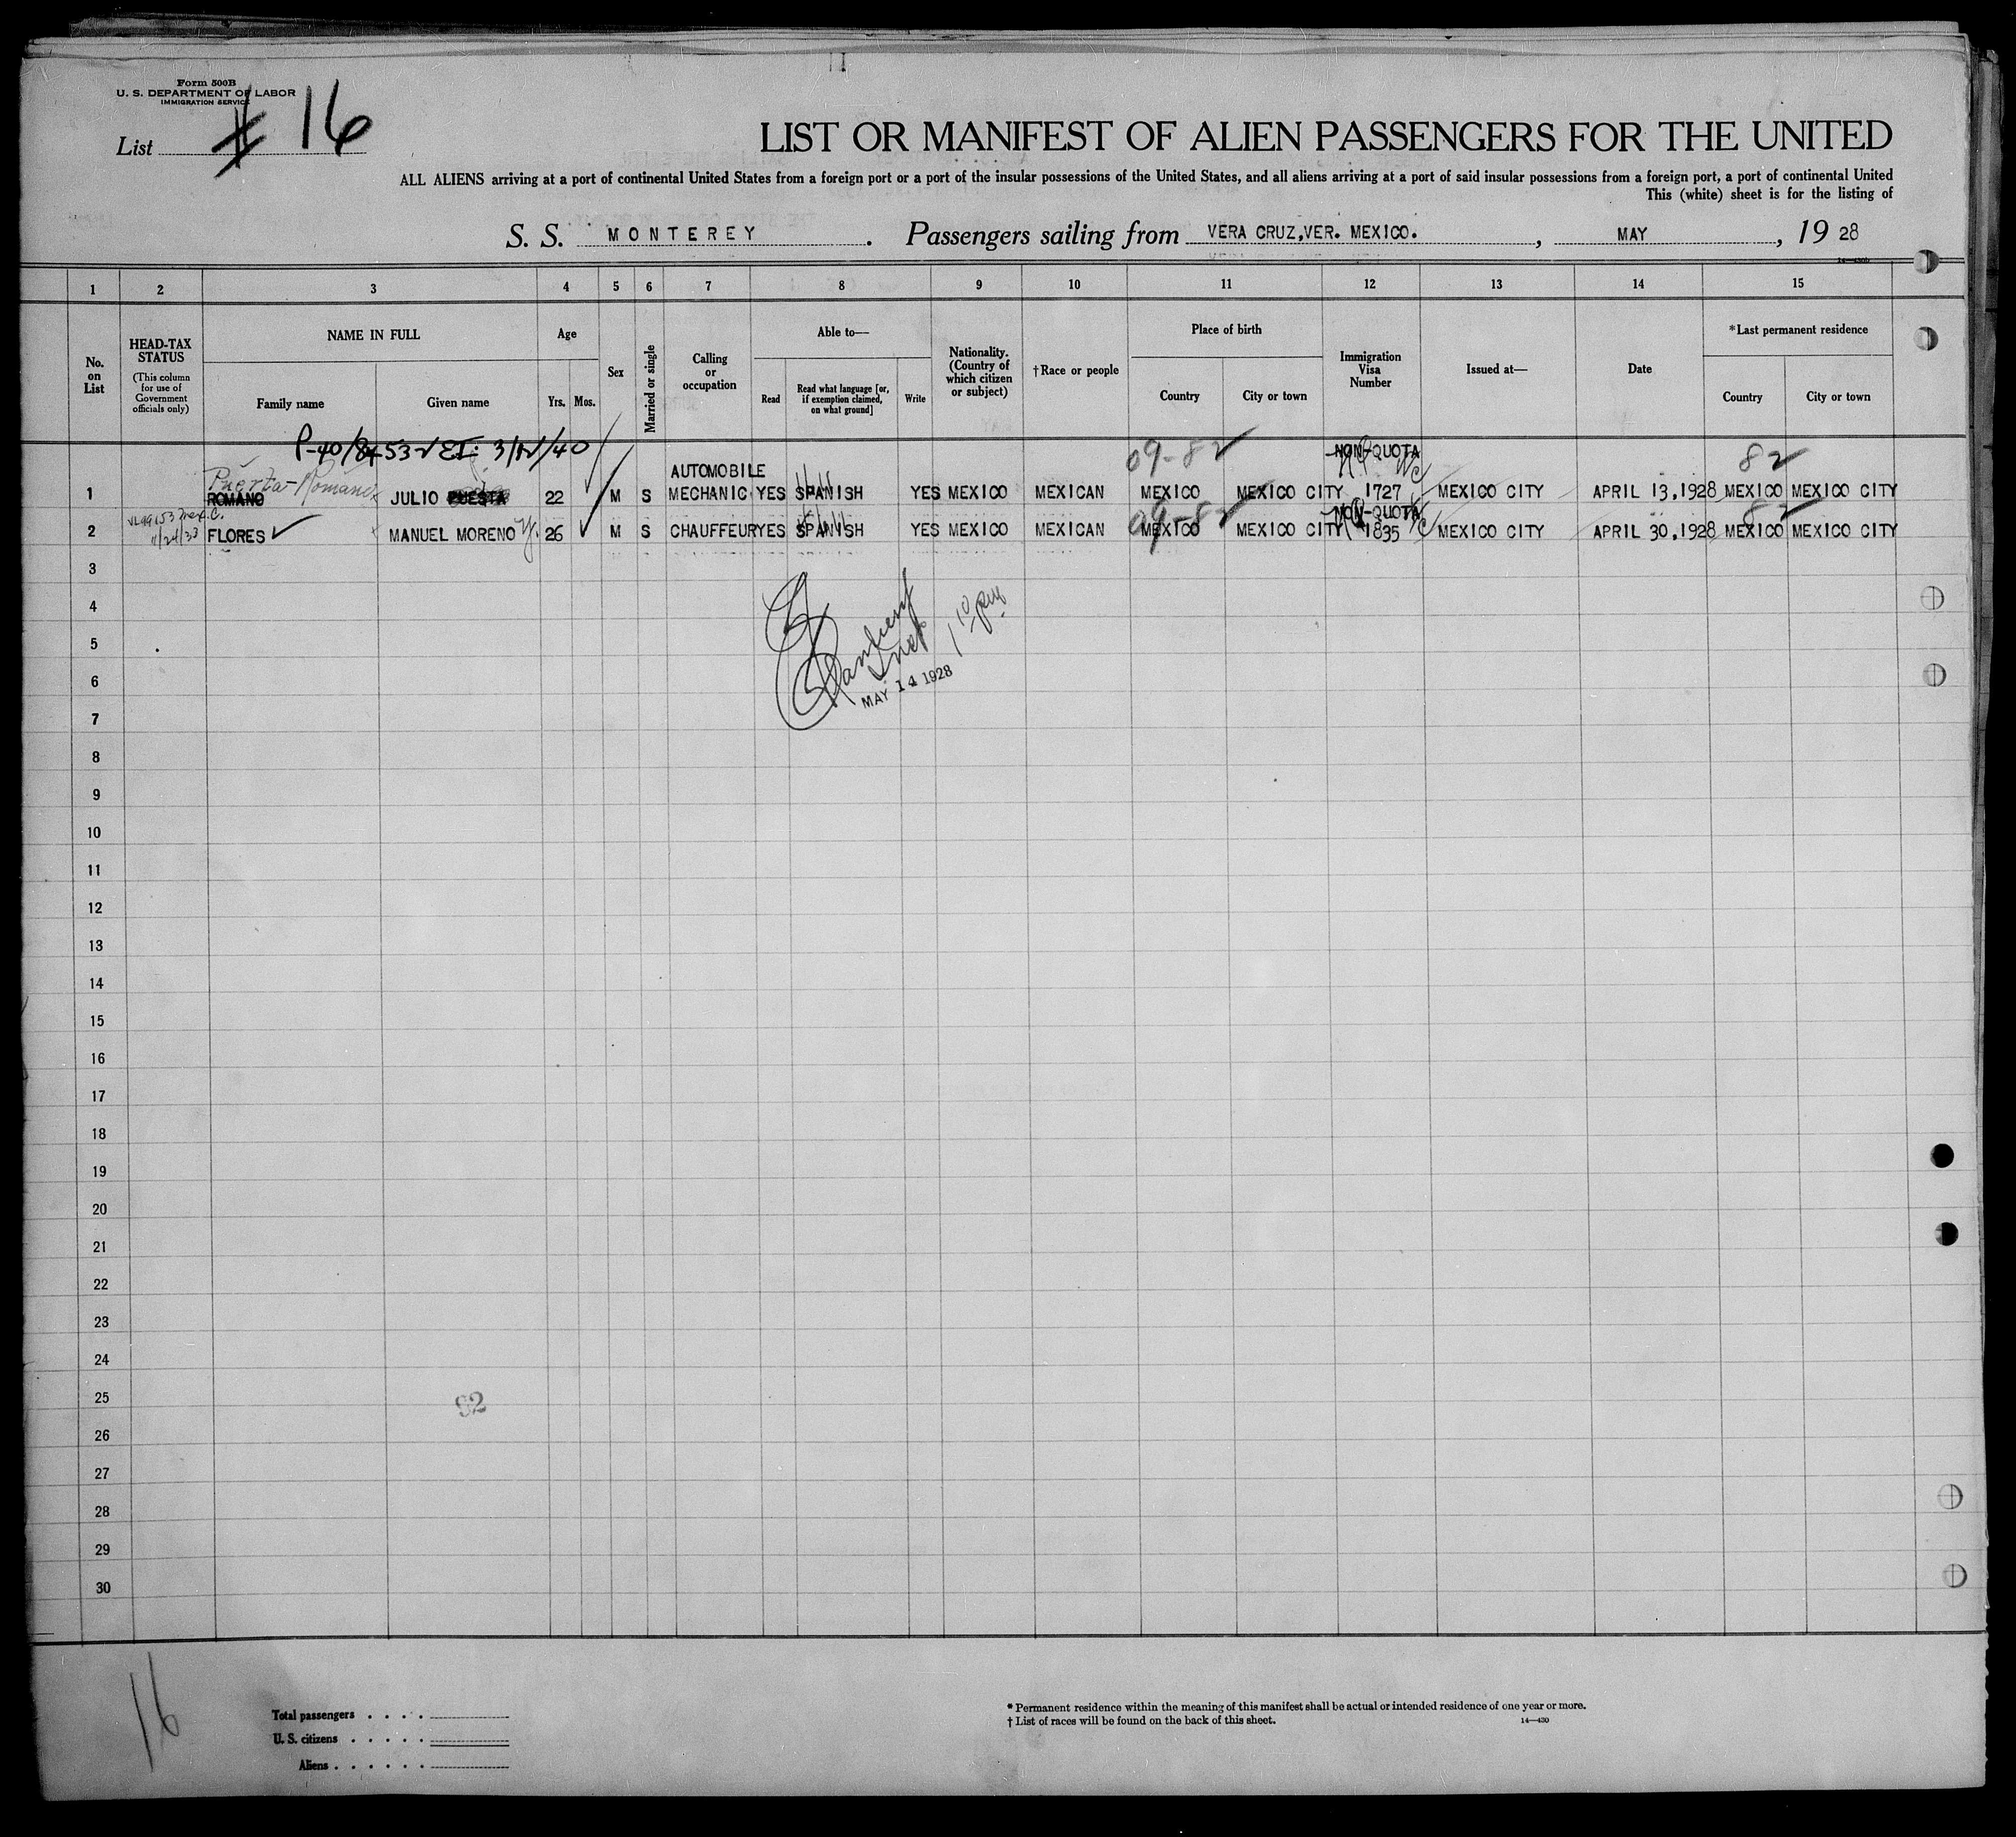 Form 500B
U. S. DEPARTMENT OF LABOR
IMMIGRATION SERVICE
List # 16
LIST OR MANIFEST OF ALIEN PASSENGERS FOR THE UNITED
ALL ALIENS arriving at a port of continental United States from a foreign port or a port of the insular possessions of the United States, and all aliens arriving at a port of said insular possessions from a foreign port, a port of continental United
This (white) sheet is for the listing of
S. S. MONTEREY. Passengers sailing from VERA CRUZ,VER. MEXICO., MAY, 19 28
1 2 3 4 5 6 7 8 9 10 11 12 13 14 15
No. on List
HEAD-TAX STATUS (This column for use of Government officials only)
NAME IN FULL
Family name
Given name
Age
Yrs. Mos.
Sex
Married or single
Calling or occupation
Able to—
Read
Read what language [or, if exemption claimed, on what ground]
Write
Nationality. (Country of which citizen or subject)
†Race or people
Place of birth
Country
City or town
Immigration Visa Number
Issued at—
Date
*Last permanent residence
Country
City or town
09-82 NON-QUOTA 82
AUTOMOBILE
Puerta-Romano
1 ROMANO JULIO PUESTA 22 M S MECHANIC YES SPANISH YES MEXICO MEXICAN MEXICO MEXICO CITY 1727 MEXICO CITY APRIL 13,1928 MEXICO MEXICO CITY
09-82 NON-QUOTA 82
11/24/33
2 FLORES MANUEL MORENO 26 M S CHAUFFEUR YES SPANISH YES MEXICO MEXICAN MEXICO MEXICO CITY 1835 MEXICO CITY APRIL 30,1928 MEXICO MEXICO CITY
3
4
5
6
MAY 14 1928
7
8
9
10
11
12
13
14
15
16
17
18
19
20
21
22
23
24
25
92
26
27
28
29
30
16
Total passengers . . . .
U. S. citizens . . . . .
Aliens . . . . . .
* Permanent residence within the meaning of this manifest shall be actual or intended residence of one year or more.
† List of races will be found on the back of this sheet. 14—430